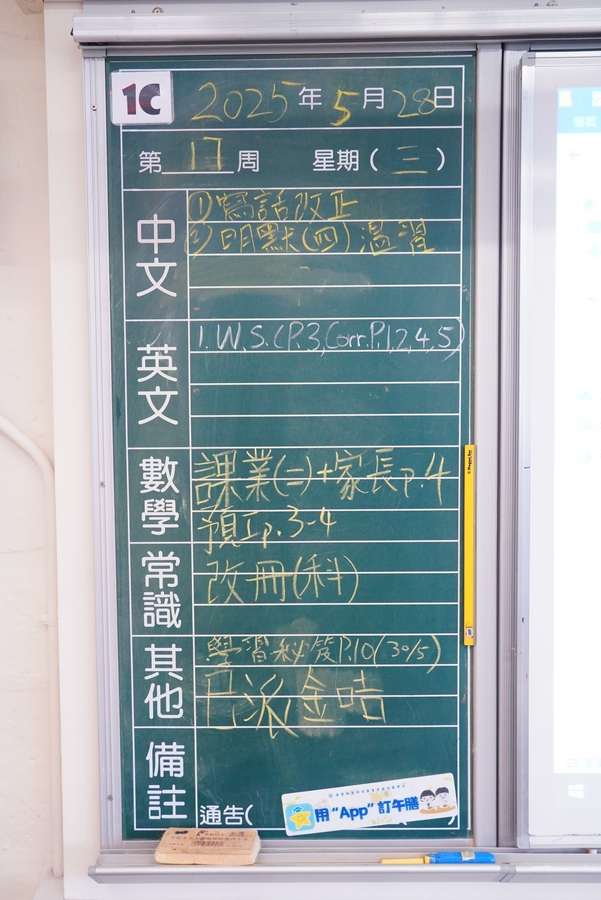 1C 2025年5月28日
第17周 星期(三)
中文
①寫話改正
②明默(四)溫習
英文
1. W.S.(P.3,Corr.P.1,2,4,5)
數學
課業(二)+家長p.4
預工p.3-4
常識
改冊(科)
其他
學習秘笈P.10(30/5)
已派金咭
備註
通告(
用"App"訂午膳